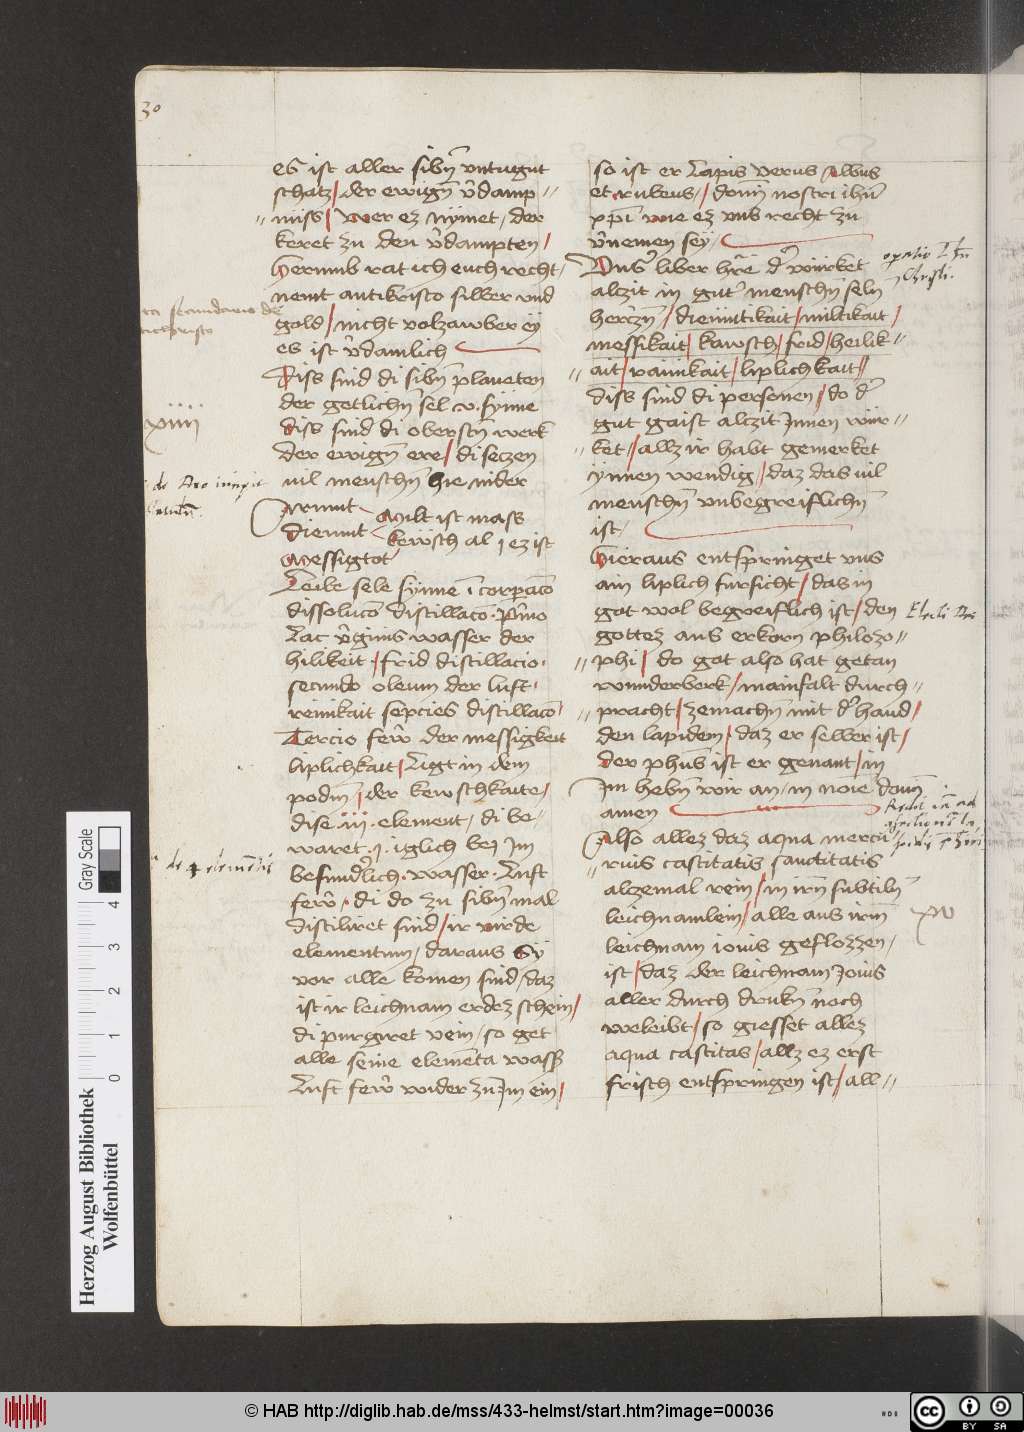 30
es ist aller sibn̄ vntugut
schatz / der ewign̄ v̄damp〃
〃niss / wer ez nymet / der
keret zu den v̄dampten /
Herumb rat ich euch recht /
nemt antikristo silber vnd
gold / nicht volzawber ey
es ist v̄damlich
Diss sind di sibn̄ planeten
der getlichn̄ sel v. synne
diss sind di oberstn̄ werk
der ewign̄ ere / di seczen
uil menschn̄ hie nider
Armut Milt ist mass
diemut kewsch al ı ez ist
Messigtot
Leibe sele synne ī corpac̄o
dissoluco distillaco · p̄mo
Lac v̄ginis wasser der
hilikeit · / frid distillacio ·
secundo oleum der luft ·
reinikait sepcies distillac̄o
Tercio few̄ der messigkeit
liplichkait / Ligt in dem
podm̄ / der kewschkaite /
dise · iii · element / di be〃
waret · ı · iglich bey Im
befundlich · wasser · Luft
few̄ · di do zu sibn̄ mal
distiliret sind / ir wirde
elementum / daraus Sy
vor alle komen sind / daz
ist ir leichnam erdez schein /
di purgiret rein / so get
alle seine elemēta wass̄
Luft few̄ wider zū Im ein /
so ist er Lapis verus Albus
et rubeus / / domī nostri ihū
xp̄i wie ez vns recht zu
v̄nemen sey /
Uns̄ liber hr̄e d' würket
alczit in gut' menschn̄ seln̄
hercżn̄ / diemitikait / miltikait /
messikait / kawsch / frid / heilik〃
〃ait / rainikait / liplichkait /
diss sind di personen / do d'
gut gaist alczit Innen wür〃
〃ket / / allz ir habt gemerket
ynnen wendig / daz das uil
menschn̄ vnbegreiflichn̄
ist /
Hieraus entspringet vns
ain liplich fursicht / das in
got wol begreiflich ist / den
gottez aus erkorn philozo〃
〃phi / do got also hat getan
wunderberk / mainfalt durch〃
〃pracht / zemachn̄ mit d' hand /
den lapidem / daz er selber ist /
der phūs ist er genant / in
Im hebn̄ wir an / in noīe domī
amen
Also allez daz aqua mercu〃
〃rius castitatis sanctitatis
alzemal rein / in irn̄ subtiln̄
leichnamlein / alle aus irm̄
leichnam iouis geflozzen /
ist / daz der leichnam Jouis
aller durch drukn̄ noch
weleibt / so giesset allez
aqua castitas / allz ez erst
frisch entspringen ist / all〃
xiiii
xv
Herzog August Bibliothek
Wolfenbüttel
Gray Scale
0 1 2 3 4
© HAB http://diglib.hab.de/mss/433-helmst/start.htm?image=00036
HAB
cc BY SA